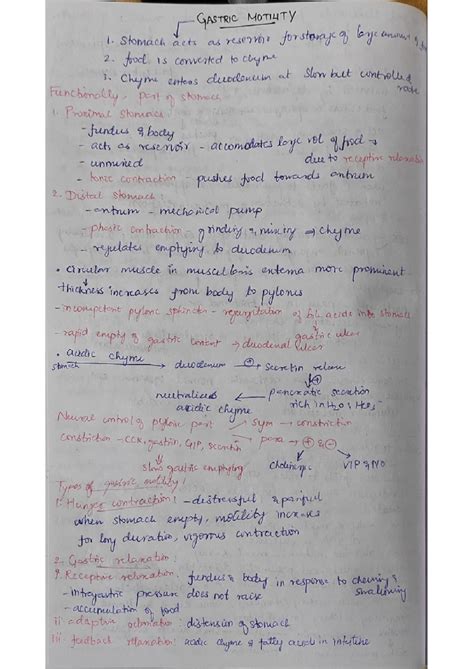 GASTRIC MOTILITY
1. Stomach acts as reservoir for storage of large amount of
2. food is converted to chyme
3. Chyme enters duodenum at slow but controlled rate
Functionally part of stomach
1. Proximal stomach:
- fundus & body
- acts as reservoir - accomodates large vol of food →
- unmixed due to receptive relaxation
- tonic contraction - pushes food towards antrum
2. Distal stomach:
- antrum - mechanical pump
- phasic contraction - grinding & mixing ⇒ chyme
- regulates emptying to duodenum
• Circular muscle in muscularis externa more prominent
thickness increases from body to pylorus
- incompetent pyloric sphincter - regurgitation of bile acids into stomach
gastric ulcer
- rapid empty of gastric content → duodenal ulcer
• acidic chyme
stomach → duodenum ⊕→ secretin release
↓⊕
neutralises ← pancreatic secretion
acidic chyme rich in H2O & HCO3-
Neural control of pyloric part → sym → constriction
constriction - CCK, gastrin, GIP, secretin → para → ⊕ & ⊖
↓ slow gastric emptying cholinergic VIP & NO
Types of gastric motility:
1. Hunger contraction: - distressful & painful
when stomach empty, motility increases
for long duration, vigorous contraction
2. Gastric relaxation:
i. Receptive relaxation: fundus & body in response to chewing & swallowing
- intragastric pressure does not raise
- accumulation of food
ii. adaptive relaxation: distension of stomach
iii. feedback relaxation: acidic chyme & fatty acids in intestine